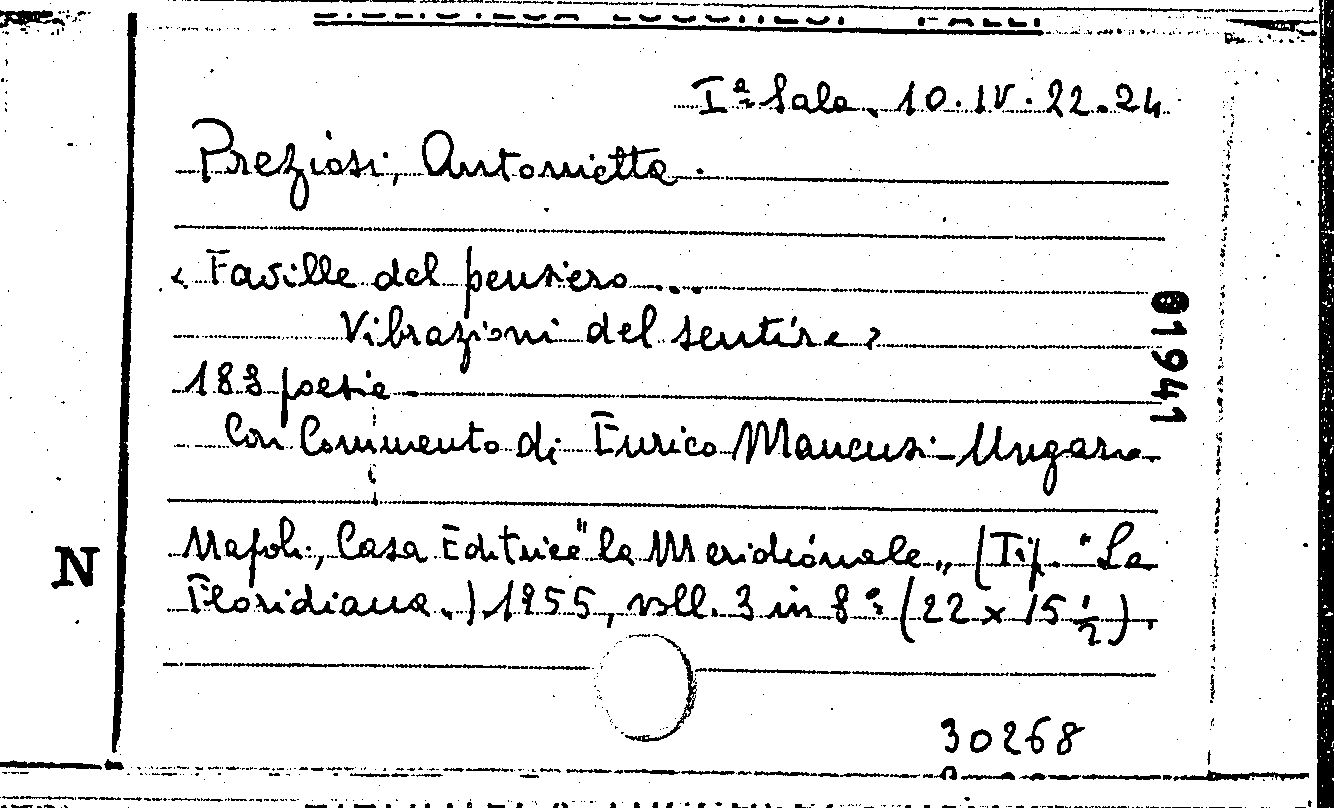 Iª Sala. 10.IV.22.24
Preziosi, Antonietta.
« Faville del pensiero...
Vibrazioni del sentire »
183 poesie.
Con Commento di Enrico Mancusi-Ungaro
Napoli, Casa Editrice "la Meridionale„ (Tip. "La
Floridiana.) 1955, voll. 3 in 8º (22 x 15 ½).
01941
N
30268